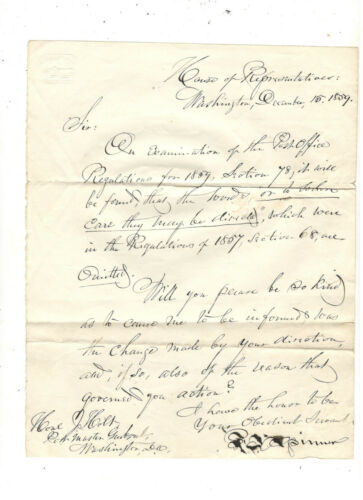 House of Representatives:
Washington, December, 15. 1859.
Sir:
On examination of the Post Office
Regulations for 1859, Section 78, it will
be found, that the words, or to whose
care they may be directed, which were
in the Regulations of 1857, Section 68, are
omitted.
Will you please be so kind
as to cause me to be informed was
the change made by your direction,
and, if so, also of the reason that
governed you action?
I have the honor to be
Your Obedient Servant
F E Spinner
Hon. J. Holt,
Post Master General,
Washington, D.C.